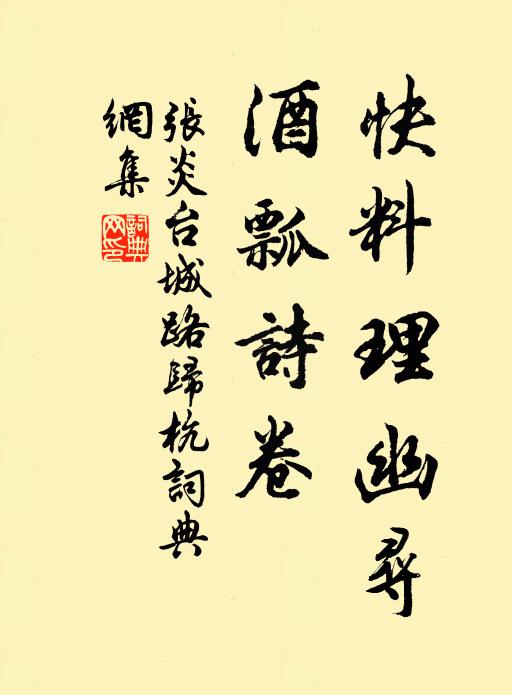 快料理幽尋
酒瓢詩卷
張炎台城路歸杭詞典
網集
詞典
网印